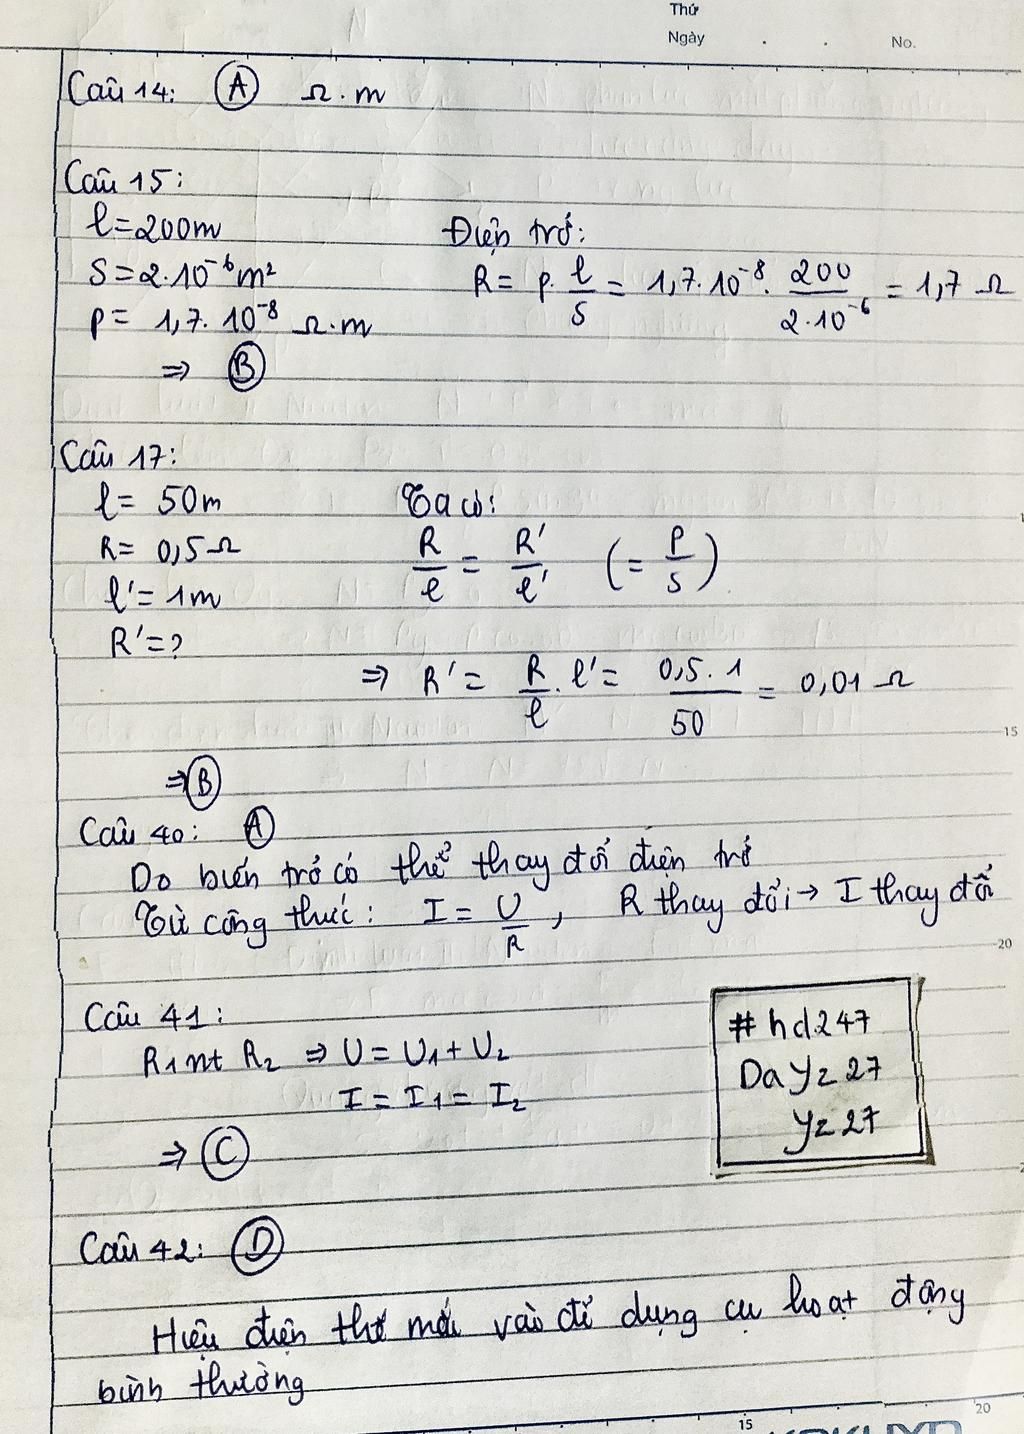 Thứ
Ngày . . No.
Câu 14: A Ω.m
Câu 15:
l=200m
S=2.10⁻⁶m²
ρ= 1,7.10⁻⁸ Ω.m
⇒ B
Điện trở:
R= ρ. l/S = 1,7.10⁻⁸. 200/2.10⁻⁶ = 1,7 Ω
Câu 17:
l= 50m
R= 0,5Ω
l'= 1m
R'=?
Ta có:
R/l = R'/l' (= ρ/S)
⇒ R'= R/l . l'= 0,5.1/50 = 0,01 Ω
⇒ B
Câu 40: A
Do biến trở có thể thay đổi điện trở
Từ công thức: I = U/R, R thay đổi → I thay đổi
Câu 41:
R₁ nt R₂ ⇒ U= U₁+U₂
I = I₁ = I₂
⇒ C
#hd247
DaYz27
Yz27
Câu 42: D
Hiệu điện thế mới vào để dụng cụ hoạt động
bình thường
15
20
15
20